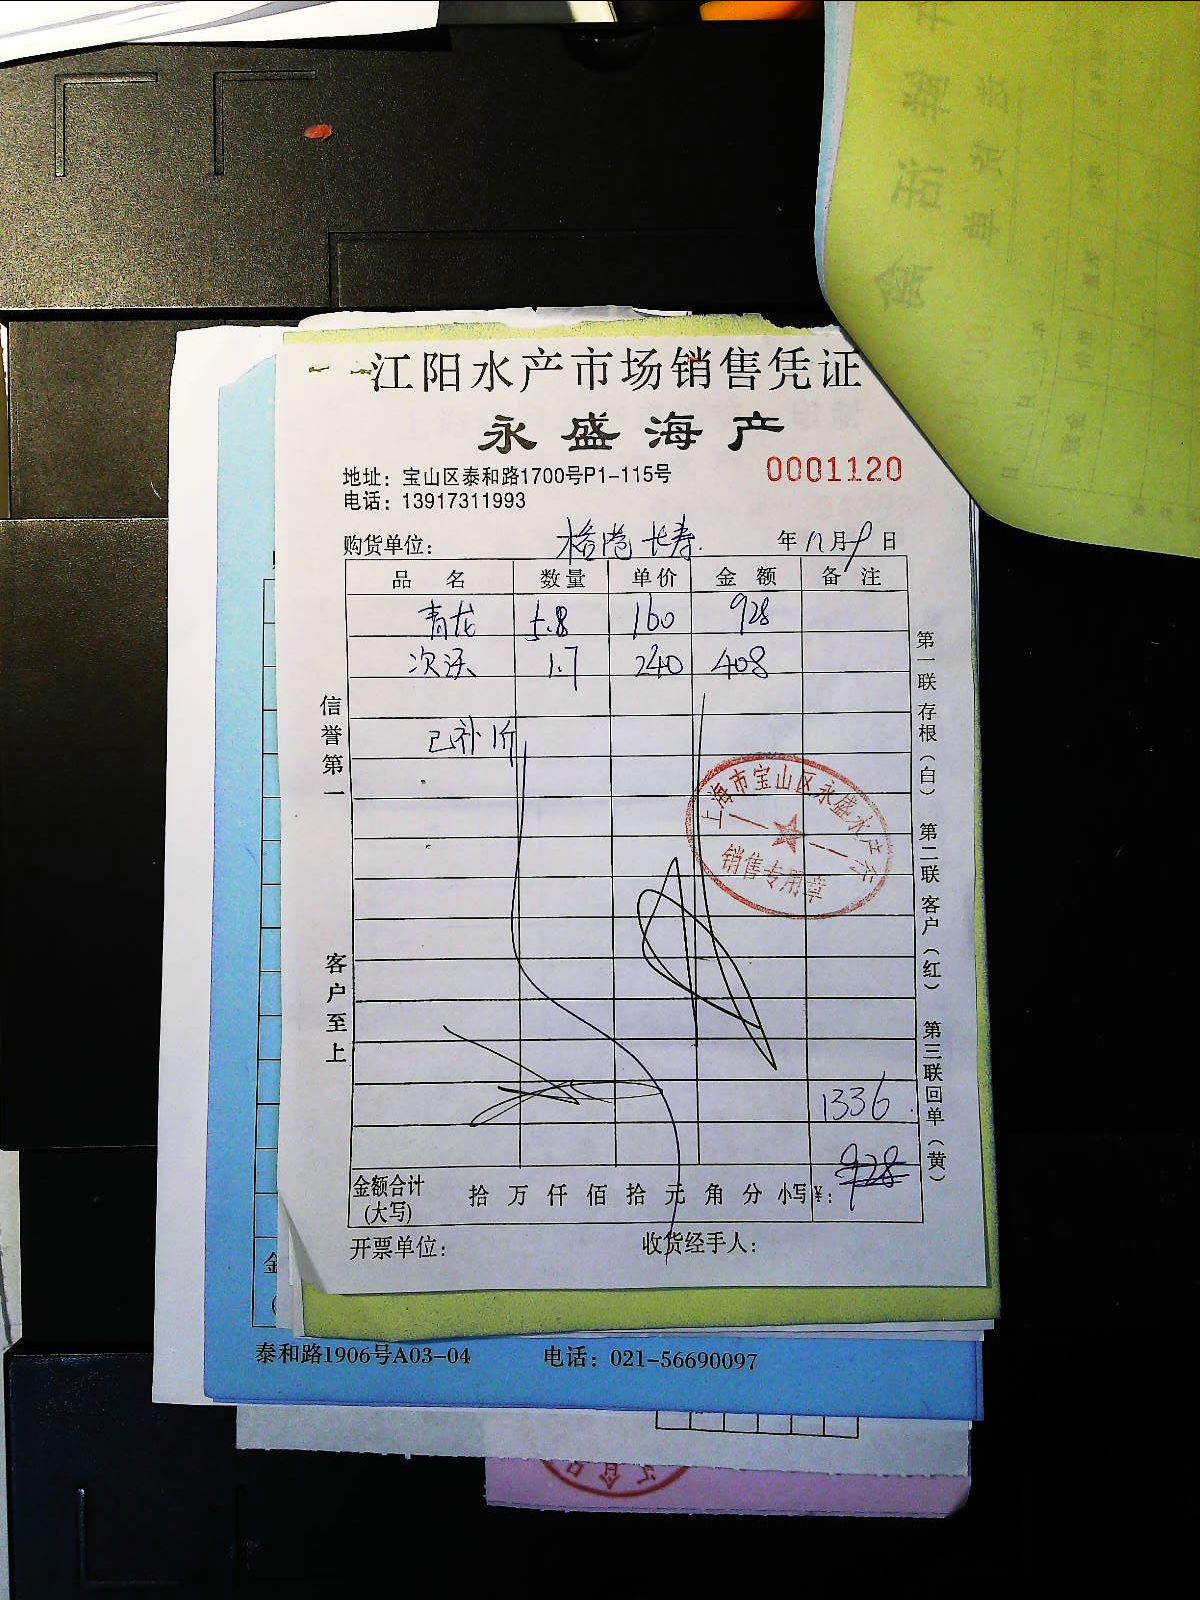 江阳水产市场销售凭证
永盛海产
地址：宝山区泰和路1700号P1-115号
0001120
电话：13917311993
购货单位： 年 12月9日
品 名 数量 单价 金 额 备 注
青龙 5.8 160 928
1.7 240 408
已补价
信誉第一
客户至上
第一联 存根（白） 第二联 客户（红） 第三联 回单（黄）
上海市宝山区永盛水产行
销售专用章
1336
金额合计(大写) 拾 万 仟 佰 拾 元 角 分 小写¥： 928
开票单位： 收货经手人：
泰和路1906号A03-04 电话：021-56690097